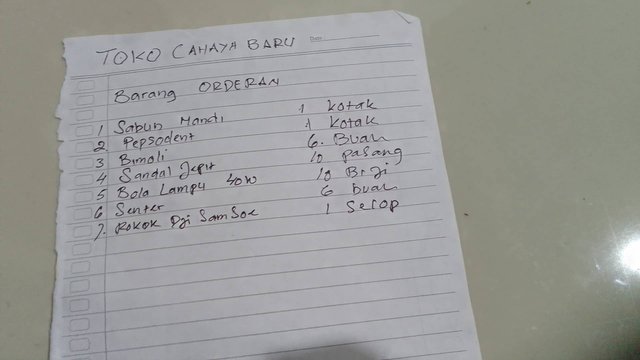 TOKO CAHAYA BARU Date:
Barang ORDERAN
1 Sabun Mandi 1 kotak
2 Pepsodent 1 kotak
3 Bimoli 6. Buah
4 Sandal Jepit 10 pasang
5 Bola Lampu 40w 10 Biji
6 Senter 6 buah
7. Rokok Dji SamSoe 1 Selop